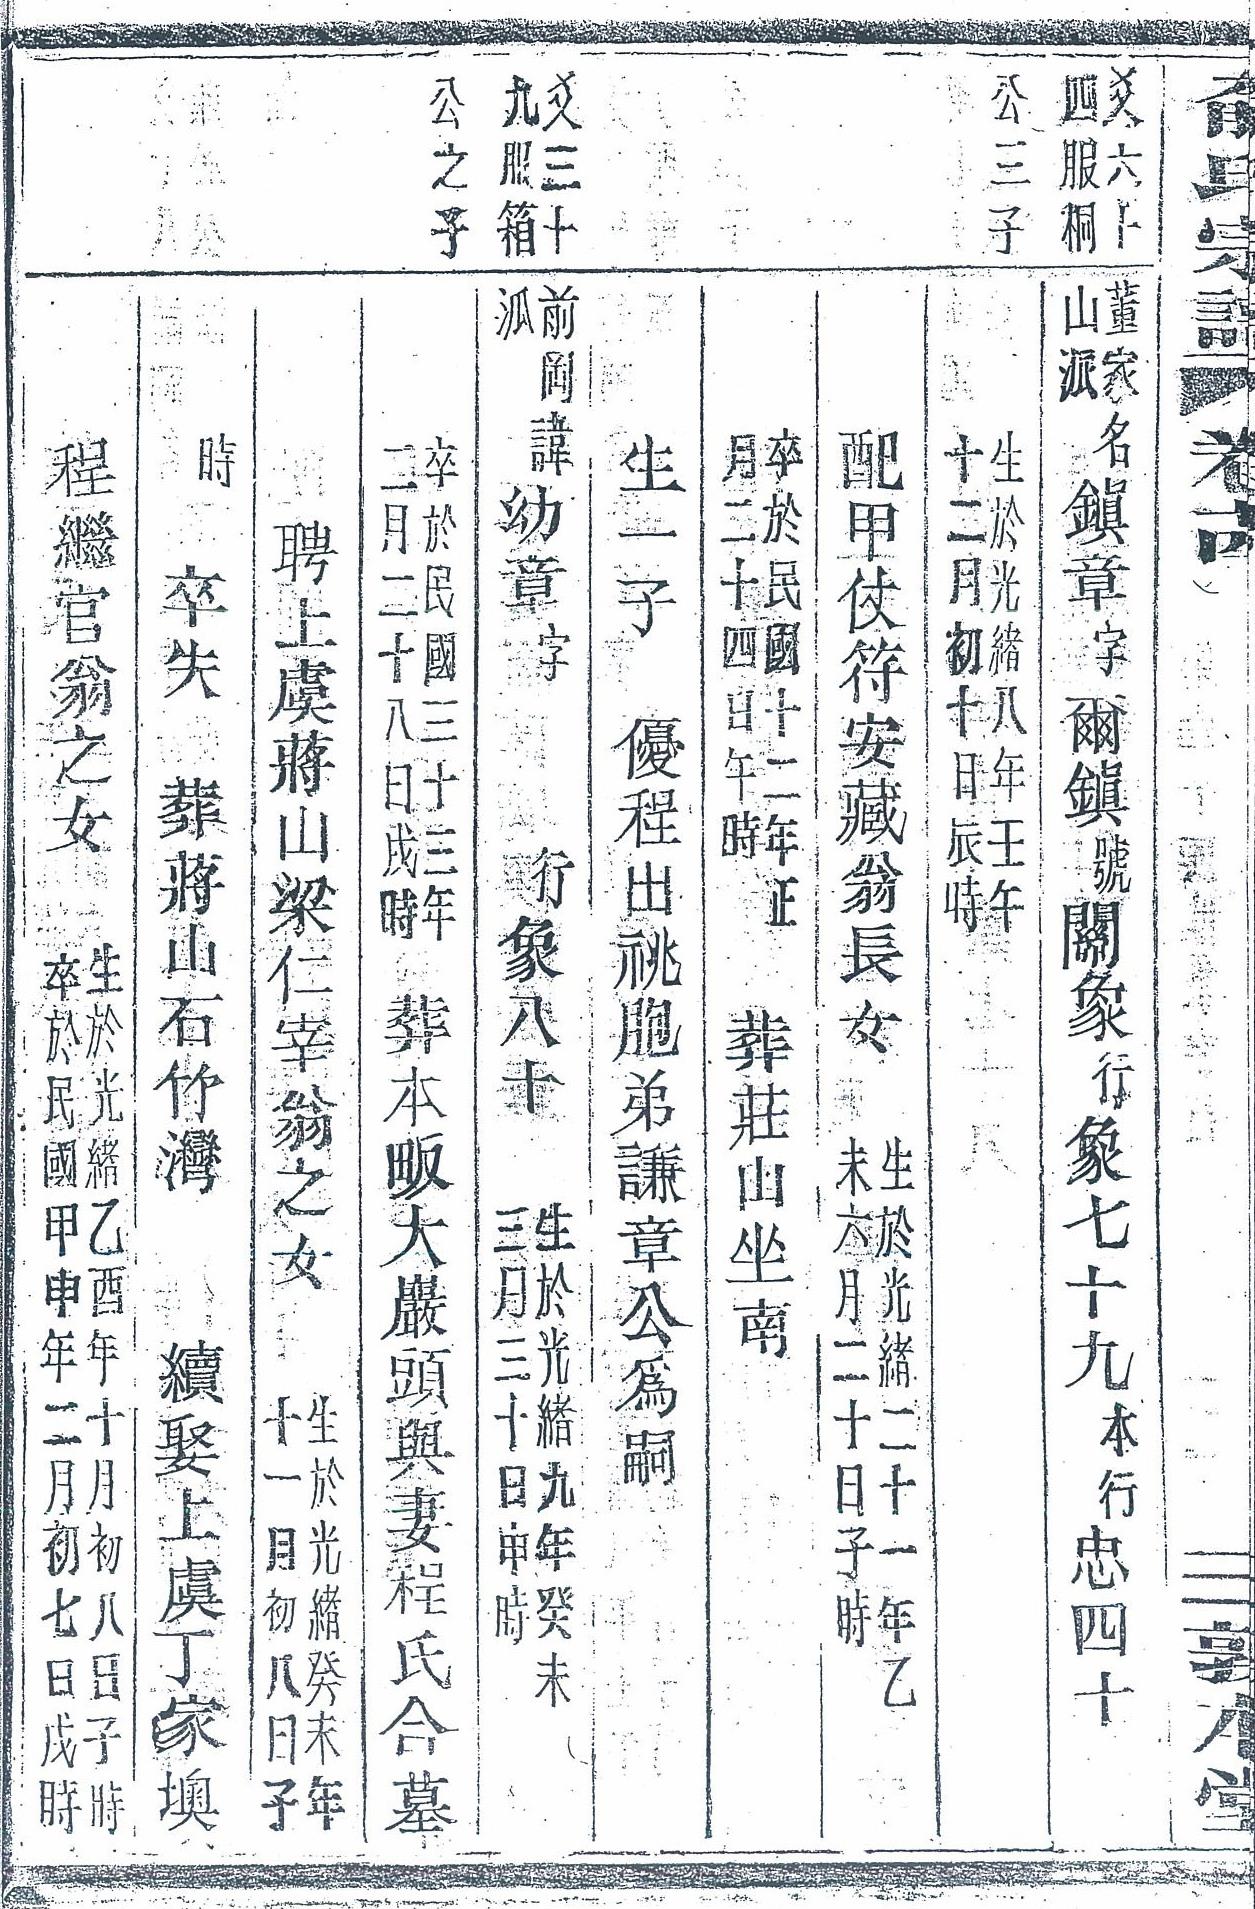 氏宗譜 卷四 三 敦本堂
爻六十
四服桐
公三子
爻三十
九服箱
公之子
董家
山派
名鎭章字爾鎭號關象行象七十九本行忠四十
生於光緒八年壬午
十二月初十日辰時
配甲仗符安藏翁長女
生於光緒二十一年乙
未六月二十日子時
卒於民國十二年正
月二十四日午時
葬莊山坐南
生一子 優程出祧胞弟謙章公爲嗣
前岡諱
派
幼章字 行象八十
生於光緒九年癸未
三月三十日申時
卒於民國三十三年
二月二十八日戌時
葬本畈大巖頭與妻程氏合墓
聘上虞蔣山梁仁宰翁之女
生於光緒癸未年
十一月初八日子
時
卒失 葬蔣山石竹灣 續娶上虞丁家墺
程繼官翁之女
生於光緒乙酉年十月初八日子時
卒於民國甲申年二月初七日戌時